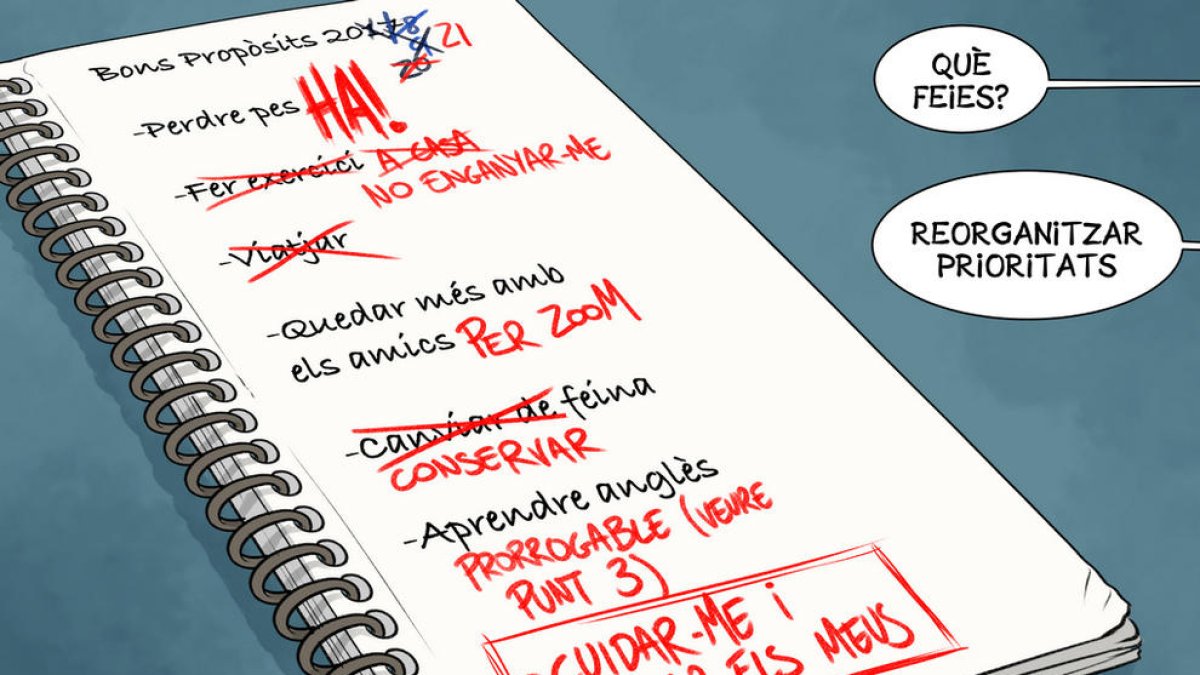 Bons Propòsits 2017 18
19
20 21
-Perdre pes HA!
-Fer exercici A CASA
NO ENGANYAR-ME
-Viatjar
-Quedar més amb
els amics PER ZOOM
-Canviar de feina
CONSERVAR
-Aprendre anglès
PRORROGABLE (VEURE
PUNT 3)
CUIDAR-ME i
ELS MEUS
QUÈ
FEIES?
REORGANITZAR
PRIORITATS